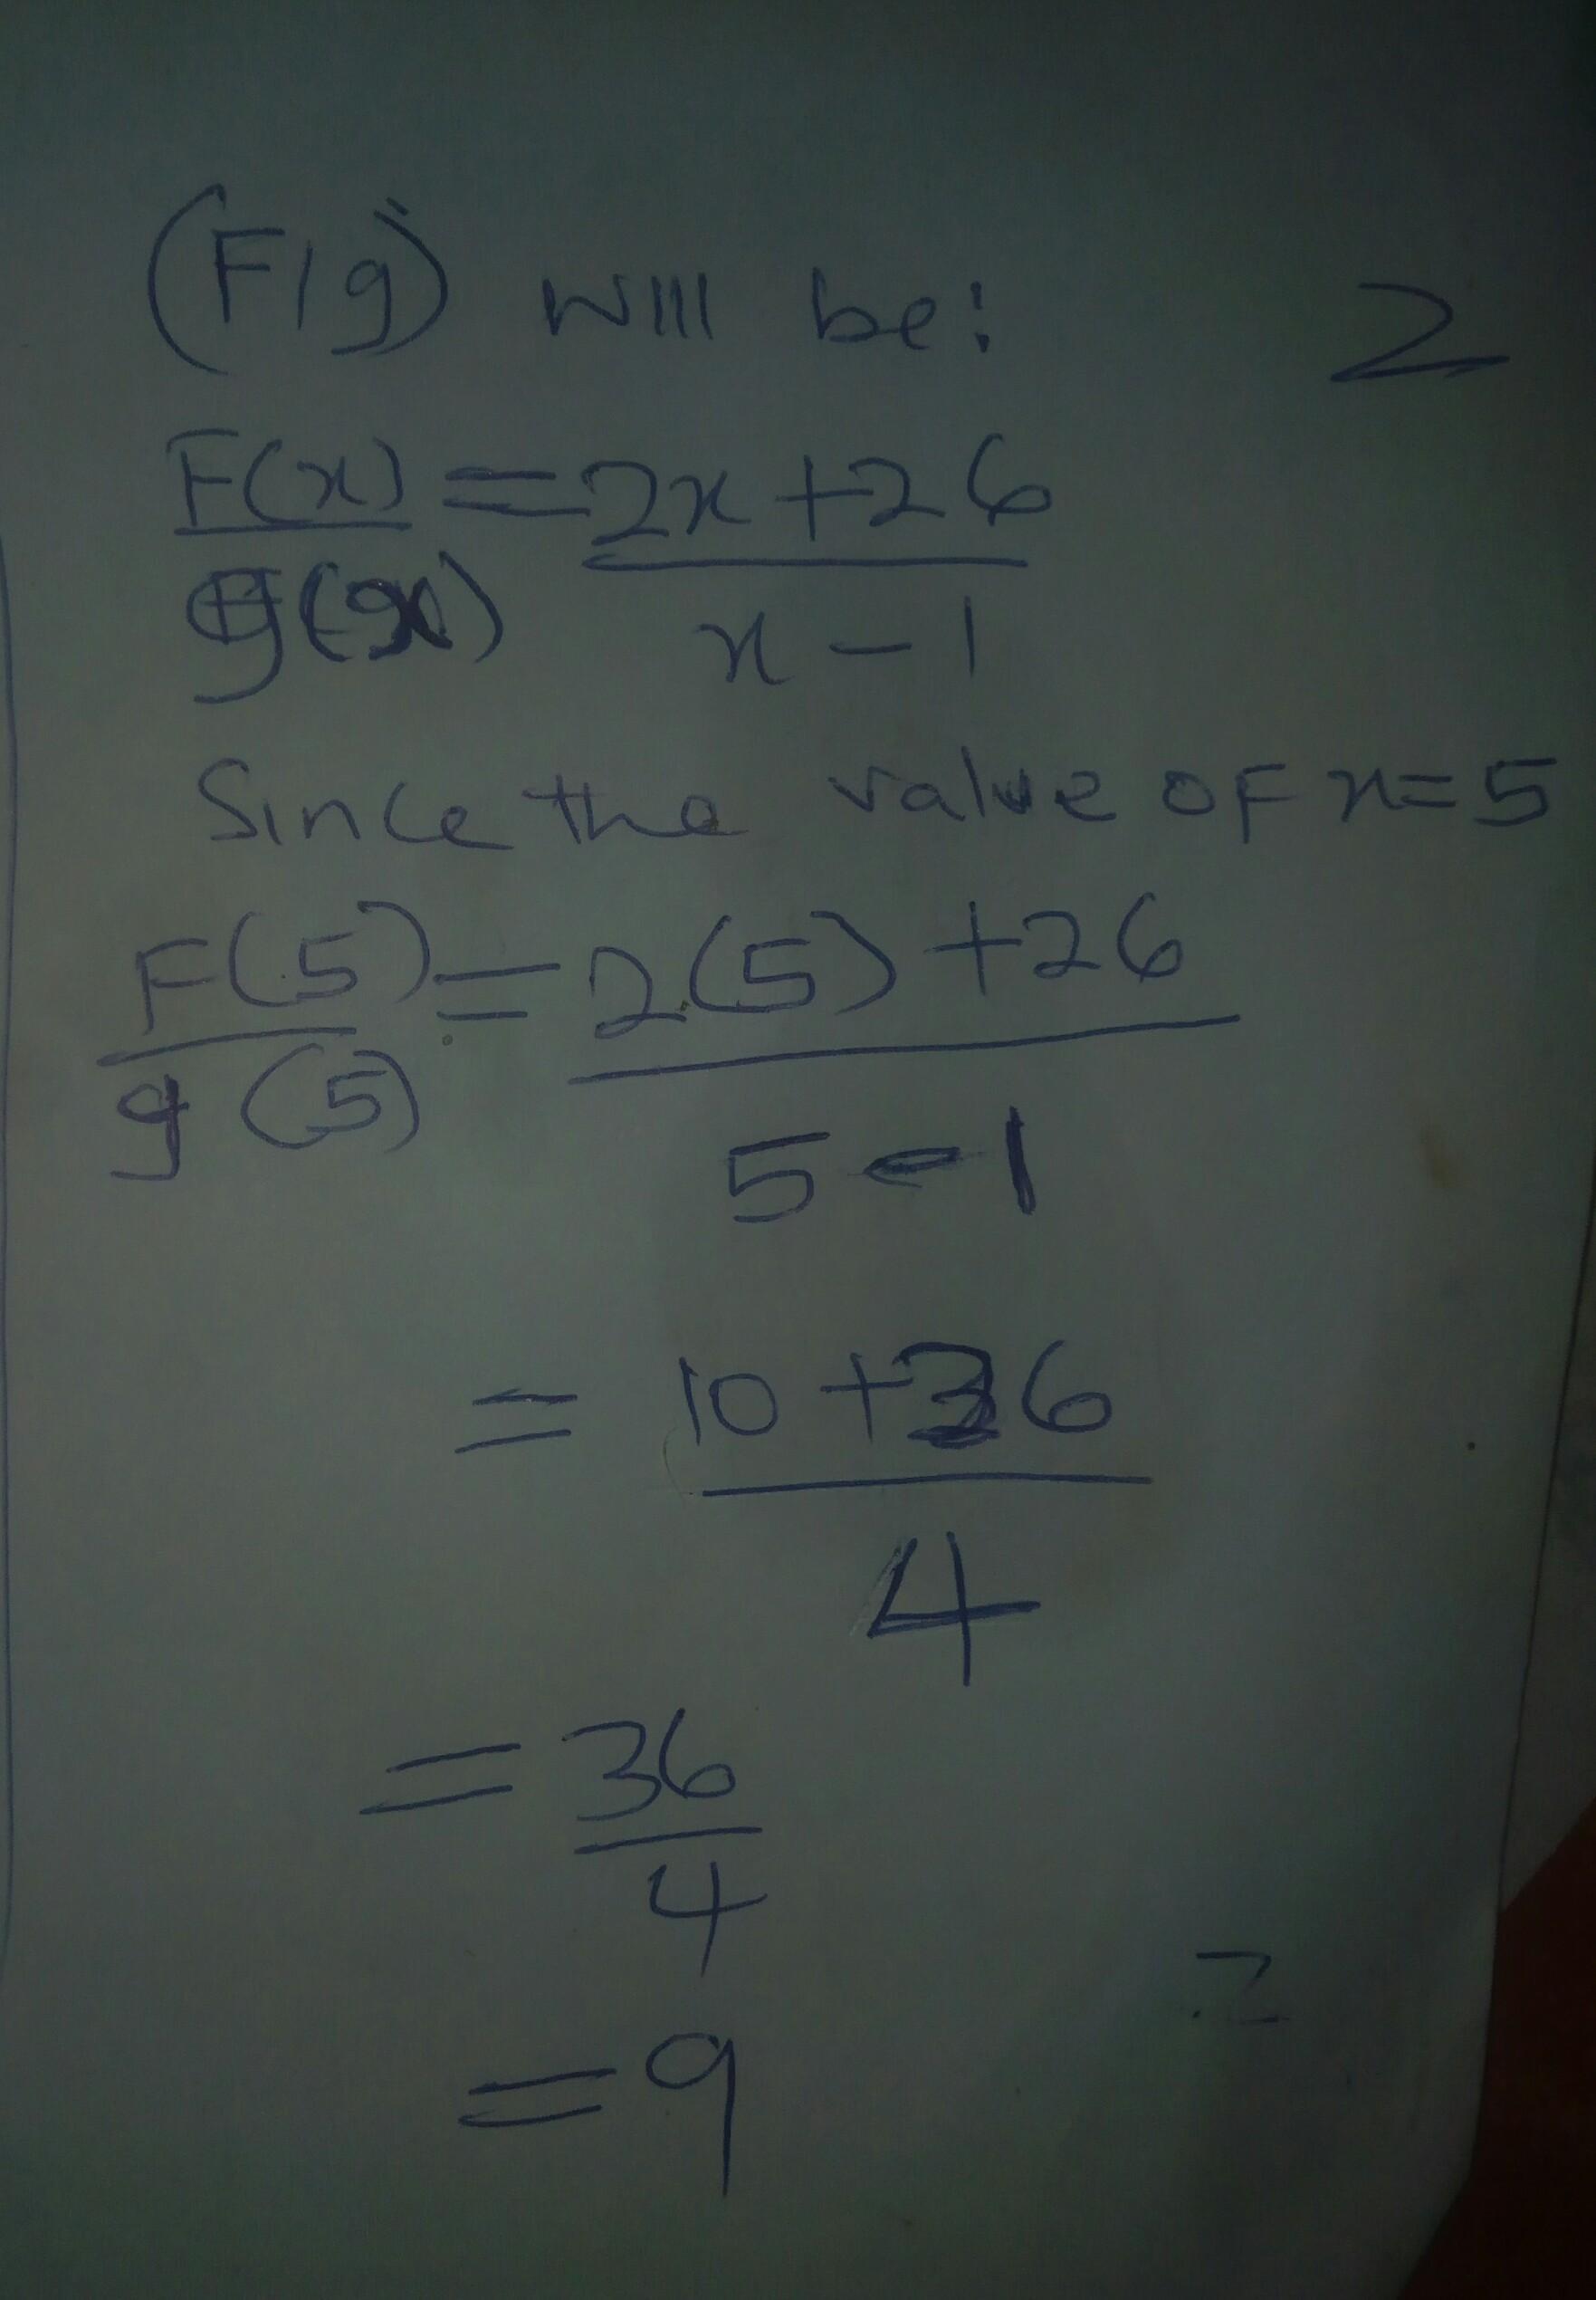 (F/g) will be: 2
F(x) = 2x + 26
g(x) x - 1
Since the value of x = 5
F(5) = 2(5) + 26
g(5) 5 - 1
= 10 + 26
4
= 36
4
= 9